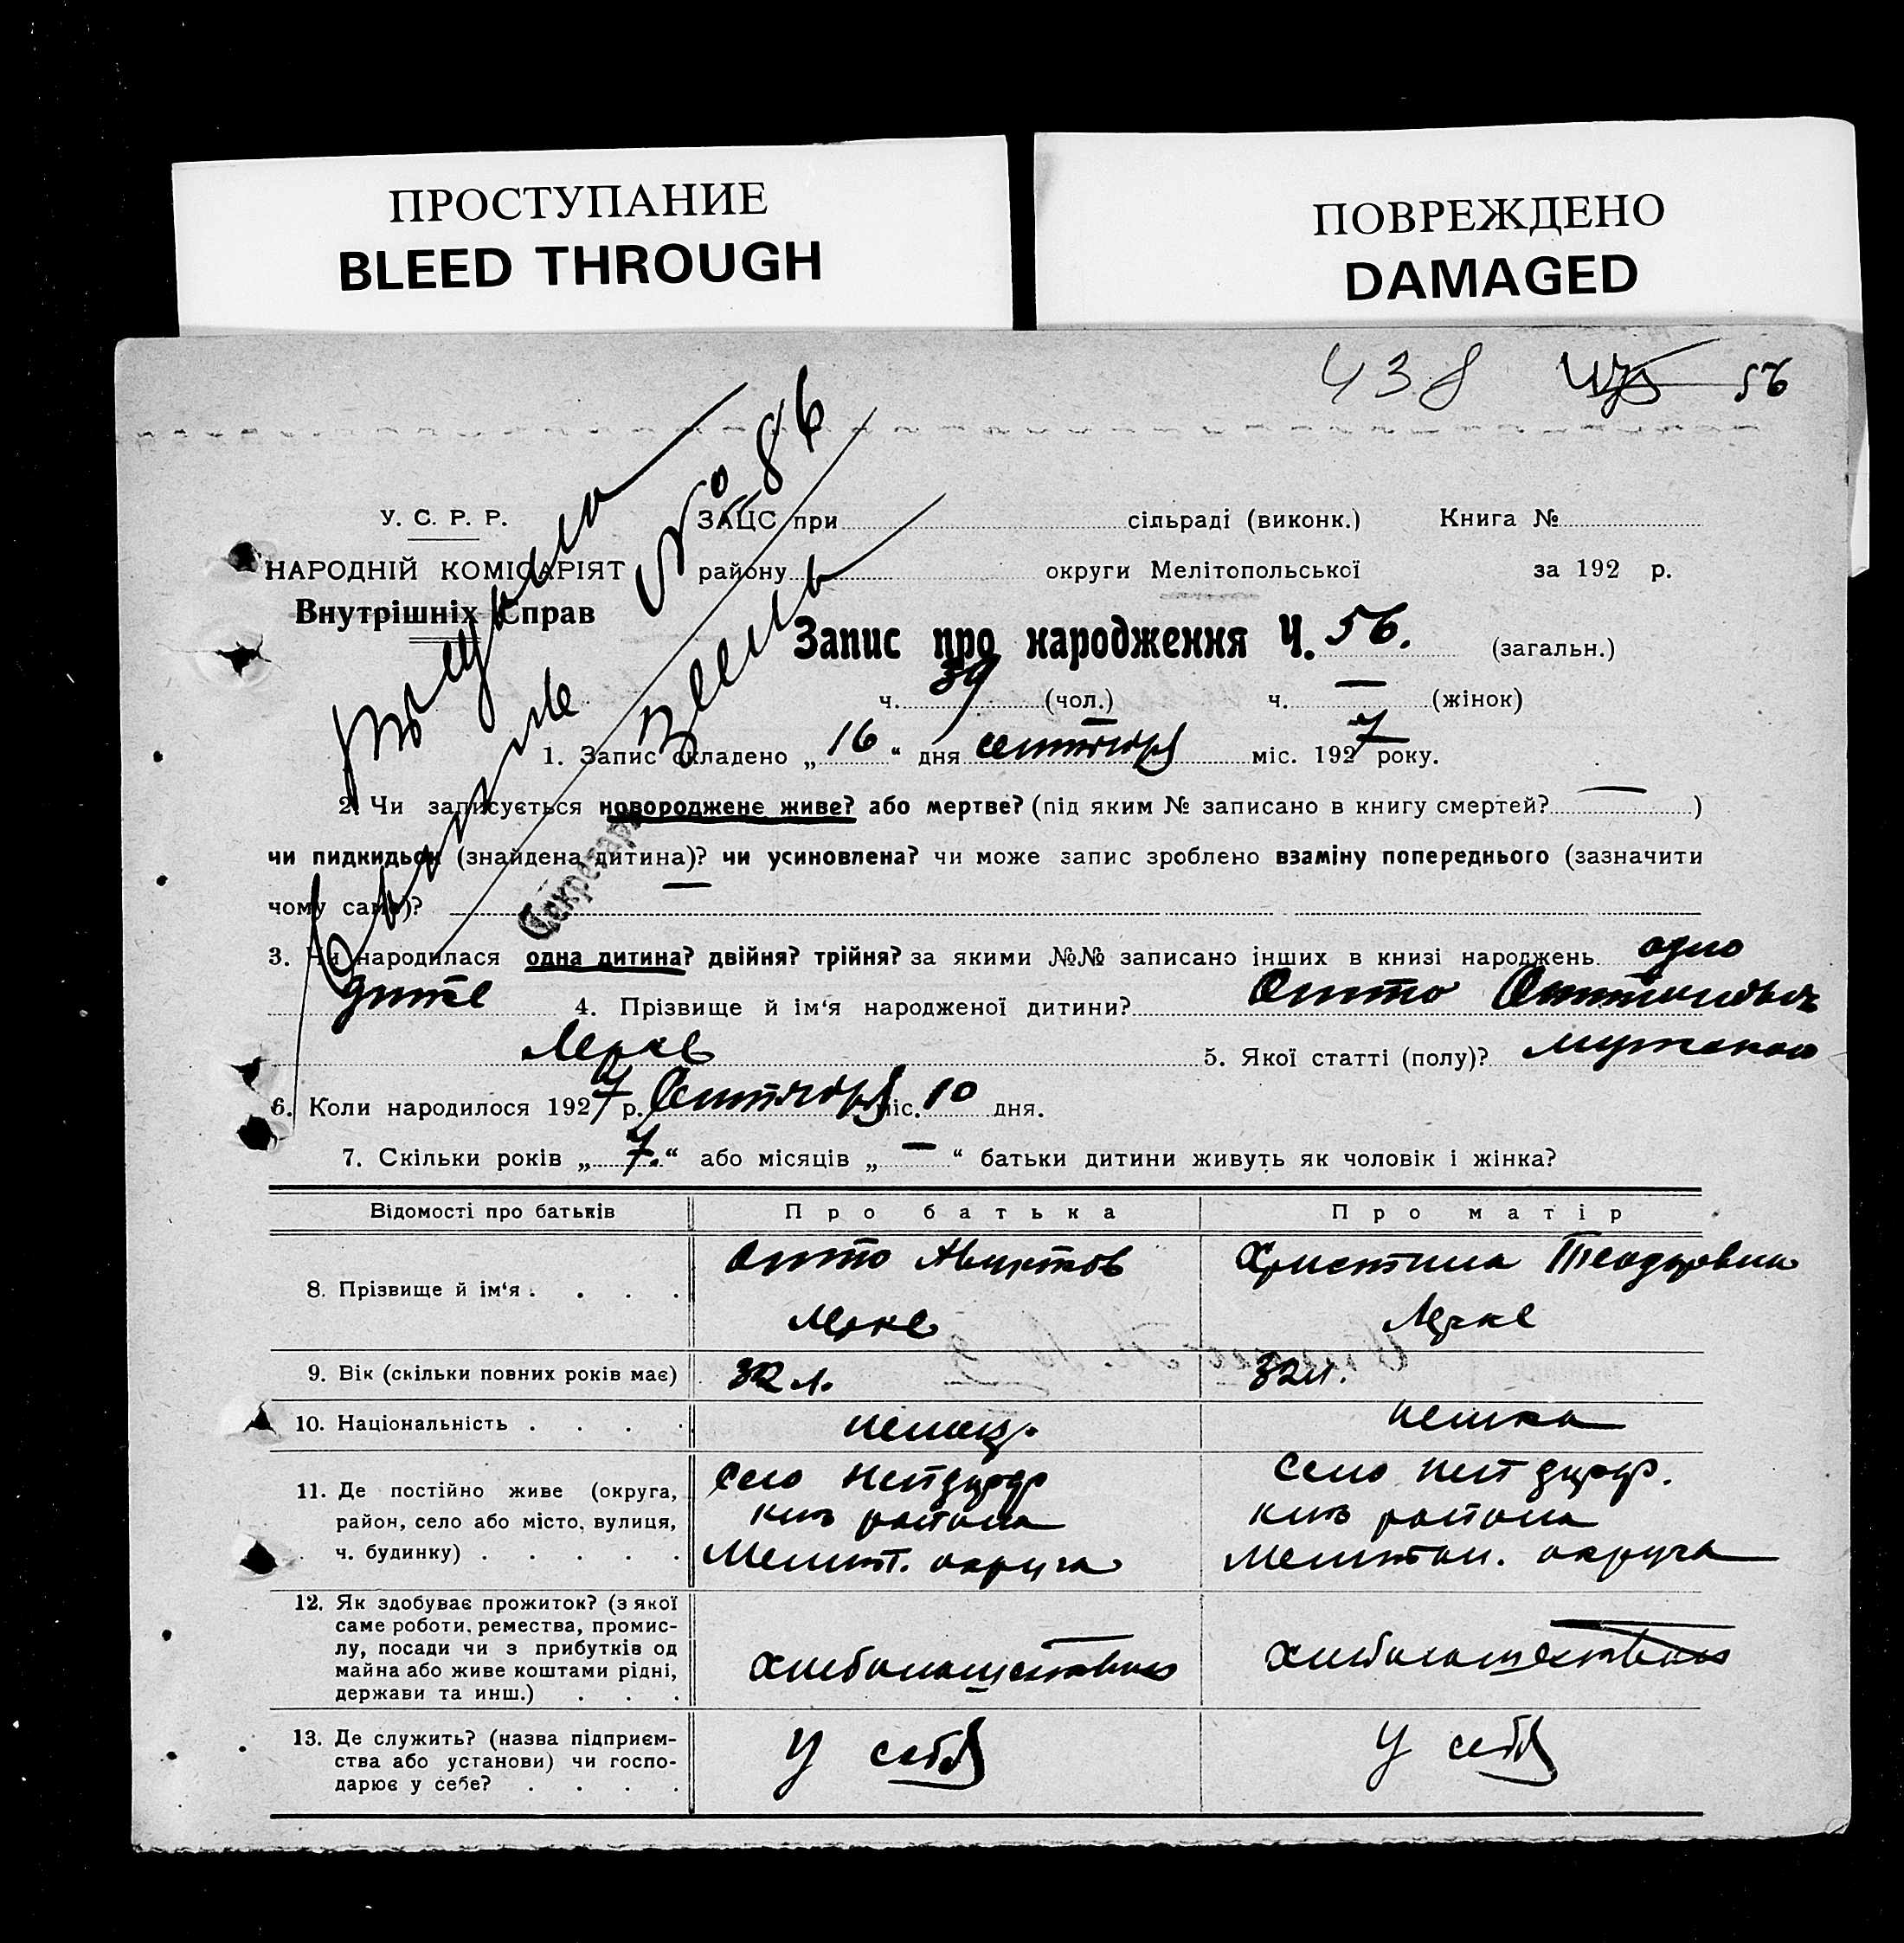 ПРОСТУПАНИЕ
BLEED THROUGH
ПОВРЕЖДЕНО
DAMAGED
438 475 56
№ 86
У. С. Р. Р.
ЗАЦС при сільраді (виконк.) Книга №
НАРОДНІЙ КОМІСАРІЯТ
району округи Мелітопольської за 192 р.
Внутрішніх Справ
Запис про народження Ч. 56. (загальн.)
ч. 39 (чол.) ч. — (жінок)
1. Запис складено „ 16 “ дня сентября міс. 1927 року.
2. Чи записується новороджене живе? або мертве? (під яким № записано в книгу смертей? — )
чи пидкидьок (знайдена дитина)? чи усиновлена? чи може запис зроблено взаміну попереднього (зазначити
чому саме)? —
Секретарь
3. Чи народилася одна дитина? двійня? трійня? за якими №№ записано інших в книзі народжень. одно
дитя 4. Прізвище й ім‘я народженої дитини? Отто Оттонович
Лерке 5. Якої статті (полу)? мужской
6. Коли народилося 1927 р. Сентября міс. 10 дня.
7. Скільки років „ 7. “ або місяців „ — “ батьки дитини живуть як чоловік і жінка?
Відомості про батьків Про батька Про матір
8. Прізвище й ім‘я . . . . Отто Христина
Лерке Лерке
9. Вік (скільки повних років має) 32 л. 32 л.
10. Національність . . . . немец. немка
11. Де постійно живе (округа, район, село або місто, вулиця, ч. будинку) . . . . .
село Нейдорф село Нейдорф.
района района
Мелит. округа Мелитоп. округа
12. Як здобуває прожиток? (з якої
саме роботи, ремества, промис-
лу, посади чи з прибутків од
майна або живе коштами рідні,
держави та инш.) . . .
хлебопашество хлебопашество
13. Де служить? (назва підприєм-
ства або установи) чи госпо-
дарює у себе? . . . .
у себя у себя